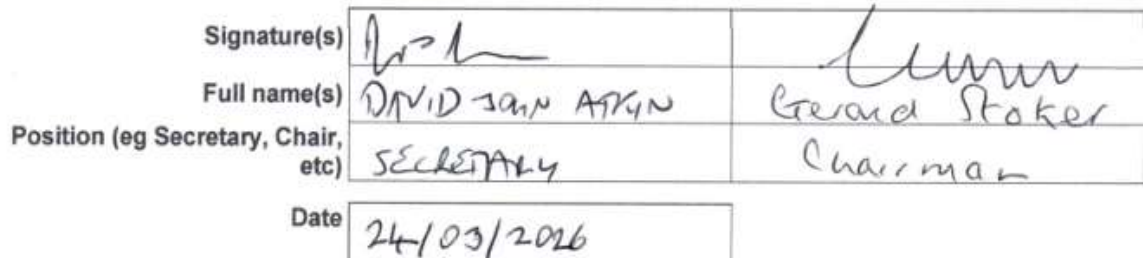 Signature(s)
Full name(s) DAVID JOHN ATKIN Gerard Stoker
Position (eg Secretary, Chair,
etc) SECRETARY Chairman
Date 24/03/2026